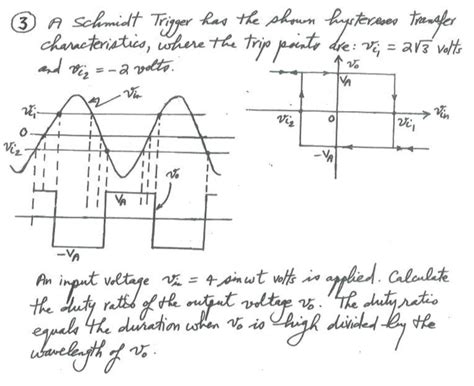 ③ A Schmidt Trigger has the shown hystereses Transfer
characteristics, where the trip points are: vi1 = 2√3 volts
and vi2 = -2 volts.
vo
vin
VA
vi1
vin
0
vi2
0
vi1
vi2
VA
vo
-VA
-VA
An input voltage vin = 4 sinwt volts is applied. Calculate
the duty ratio of the output voltage vo. The duty ratio
equals the duration when vo is high divided by the
wavelength of vo.